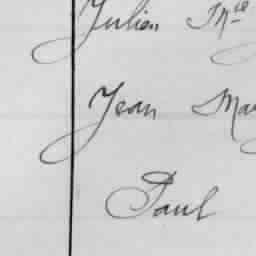 Julien Mce
Jean Mau
Paul